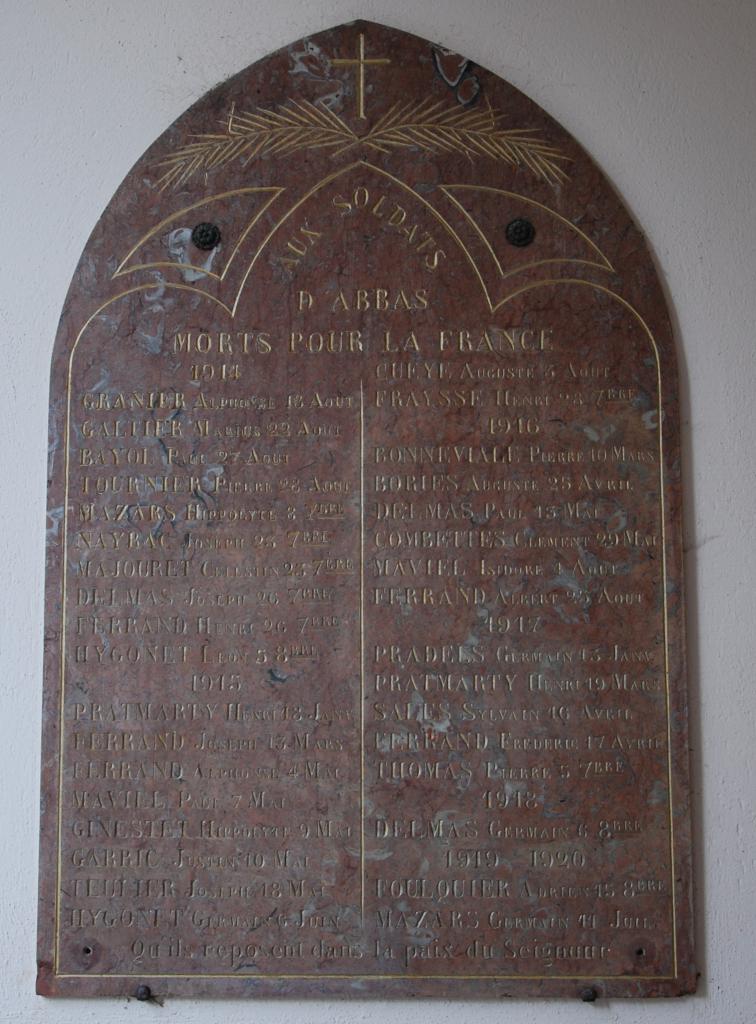 AUX SOLDATS
D'ABBAS
MORTS POUR LA FRANCE
1914
GRANIER Alphonse 13 Août
GALTIER Marius 22 Août
BAYOL Paul 27 Août
TOURNIER Pierre 28 Août
MAZARS Hippolyte 8 7BRE
NAYRAC Joseph 23 7BRE
MAJOURET Celestin 23 7BRE
DELMAS Joseph 26 7BRE
FERRAND Henri 26 7BRE
HYGONET Léon 5 8BRE
1915
PRATMARTY Henri 18 Janv
FERRAND Joseph 13 Mars
FERRAND Alphonse 4 Mai
MAVIEL Paul 7 Mai
GINESTET Hippolyte 9 Mai
GARRIC Justin 10 Mai
TEULIER Joseph 18 Mai
HYGONET Germain 6 Juin
CUEYE Auguste 3 Août
FRAYSSE Henri 28 7BRE
1916
BONNEVIALE Pierre 10 Mars
BORIES Auguste 25 Avril
DELMAS Paul 13 Mai
COMBETTES Clément 29 Mai
MAVIEL Isidore 4 Août
FERRAND Albert 25 Août
1917
PRADELS Germain 13 Janv
PRATMARTY Henri 19 Mars
SALES Sylvain 16 Avril
FERRAND Frédéric 17 Avril
THOMAS Pierre 5 7BRE
1918
DELMAS Germain 6 8BRE
1919 - 1920
FOULQUIER Adrien 15 8BRE
MAZARS Germain 11 Juil
Qu'ils reposent dans la paix du Seigneur